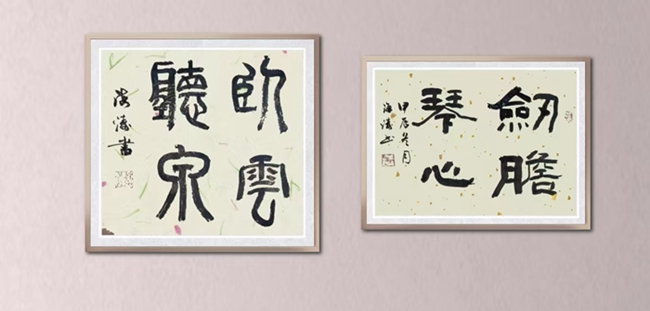 臥雲
聽泉
海濤書
劒膽
琴心
甲辰冬月
海濤书